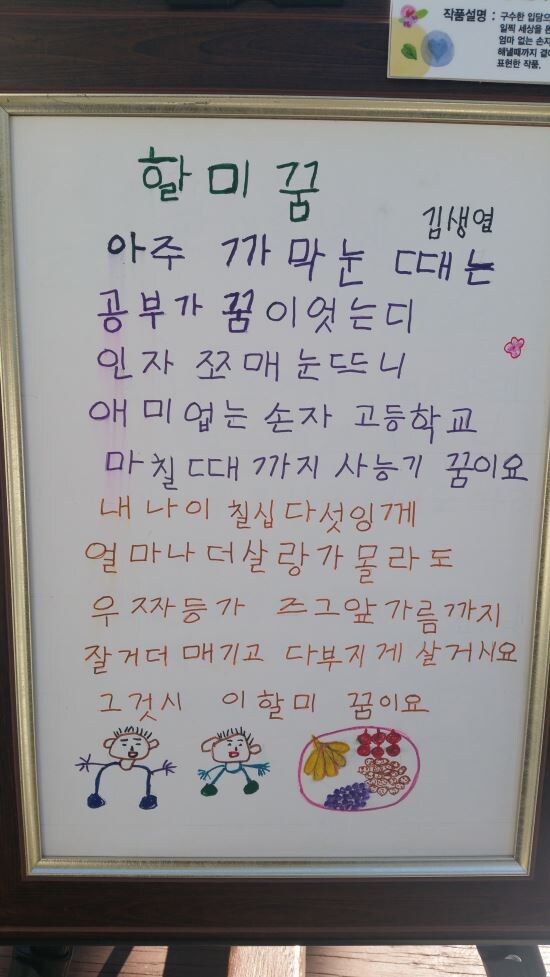 작품설명 : 구수한 입담으
일찍 세상을 
엄마 없는 손자
해낼때까지 곁에
표현한 작품.
할미 꿈
김생엽
아주 까막눈 때는
공부가 꿈이엇는디
인자 쪼매 눈뜨니
애미업는 손자 고등학교
마칠 때까지 사능기 꿈이요
내 나이 칠십다섯잉게
얼마나 더살랑가 몰라도
우짜등가 즈그앞가름까지
잘거더 매기고 다부지게 살거시요
그것시 이할미 꿈이요